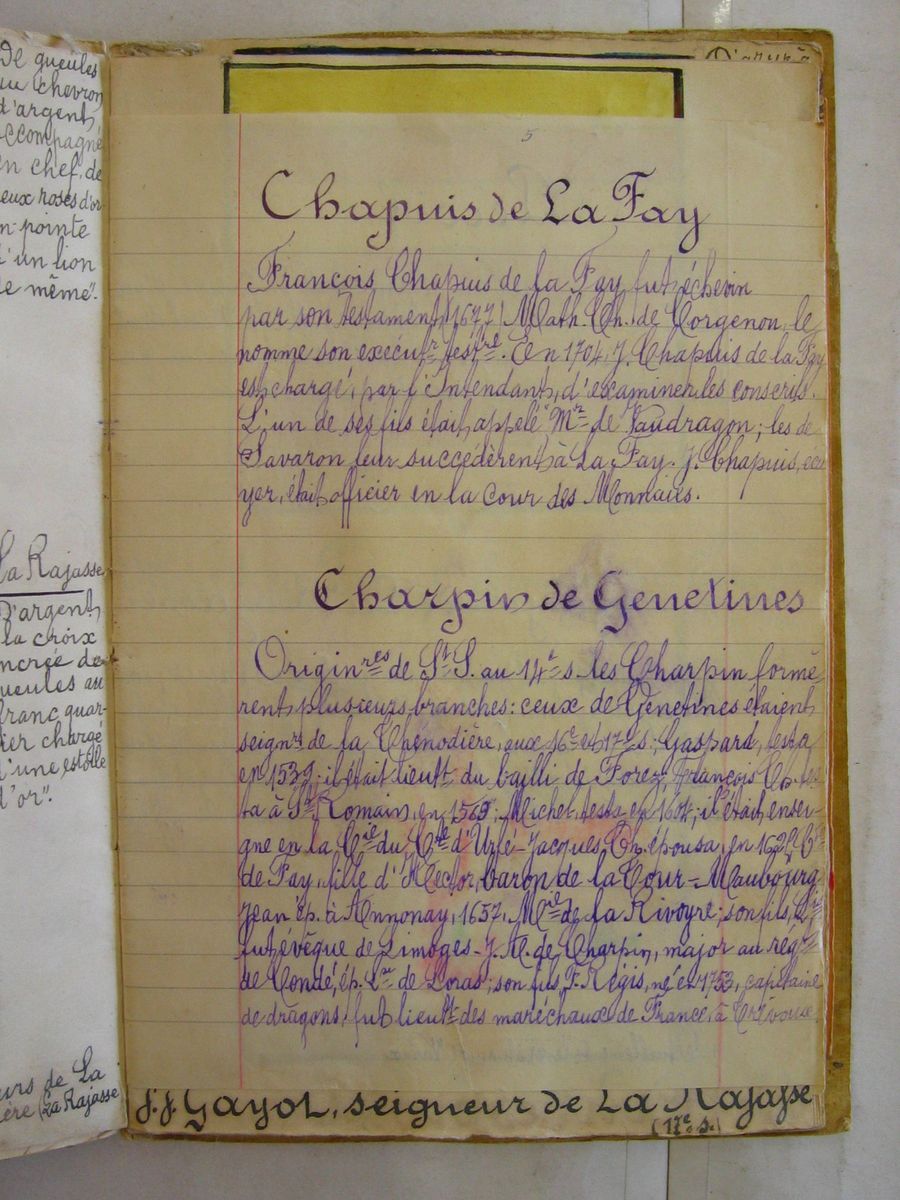 De gueules
au chevron
d'argent,
accompagné
en chef de
deux roses d'or
en pointe
d'un lion
de même".
La Rajasse
D'argent
la croix
ancrée de
gueules au
franc quar-
tier chargé
d'une estolle
d'or".
de La
(La Rajasse
D'azur à
5
Chapuis de La Fay
François Chapuis de la Fay fut échevin
par son testament, (1677) Math. Ch. de Corgenon, le
nomme son exécutr testre. En 1704, J. Chapuis de la Fay
est chargé, par l'Intendant, d'examiner les conscrits.
L'un de ses fils était appelé Mr de Vaudragon; les de
Savaron leur succédèrent à La Fay. J. Chapuis, ecu
yer, était officier en la cour des Monnaies.
Charpin de Genetines
Originres de St S. au 14e s. les Charpin formè
rent plusieurs branches: ceux de Genetines étaient
seignrs de la Chenodière, aux 16e et 17e s; Gaspard, testa
en 1539; il était lieutt du bailli de Forez; François Ch. tes
ta à St Romain, en 1569; Michel testa en 1604; il était ensei-
gne en la Cie du Cte d'Urfé - Jacques Ch. épousa, en
de Fay, fille d'Hector, baron de la Tour-Maubourg
Jean ép. à Annonay, 1657, Mie de la Rivoyre; son fils,
fut évêque de Limoges - J. de Charpin, major au régt
de Condé, ép. de Loras; son fils, F. Régis, né en 1753, capitaine
de dragons, fut lieutt des maréchaux de France, à Trévoux
J.J. Gayot, seigneur de La Rajasse
(17e s.)